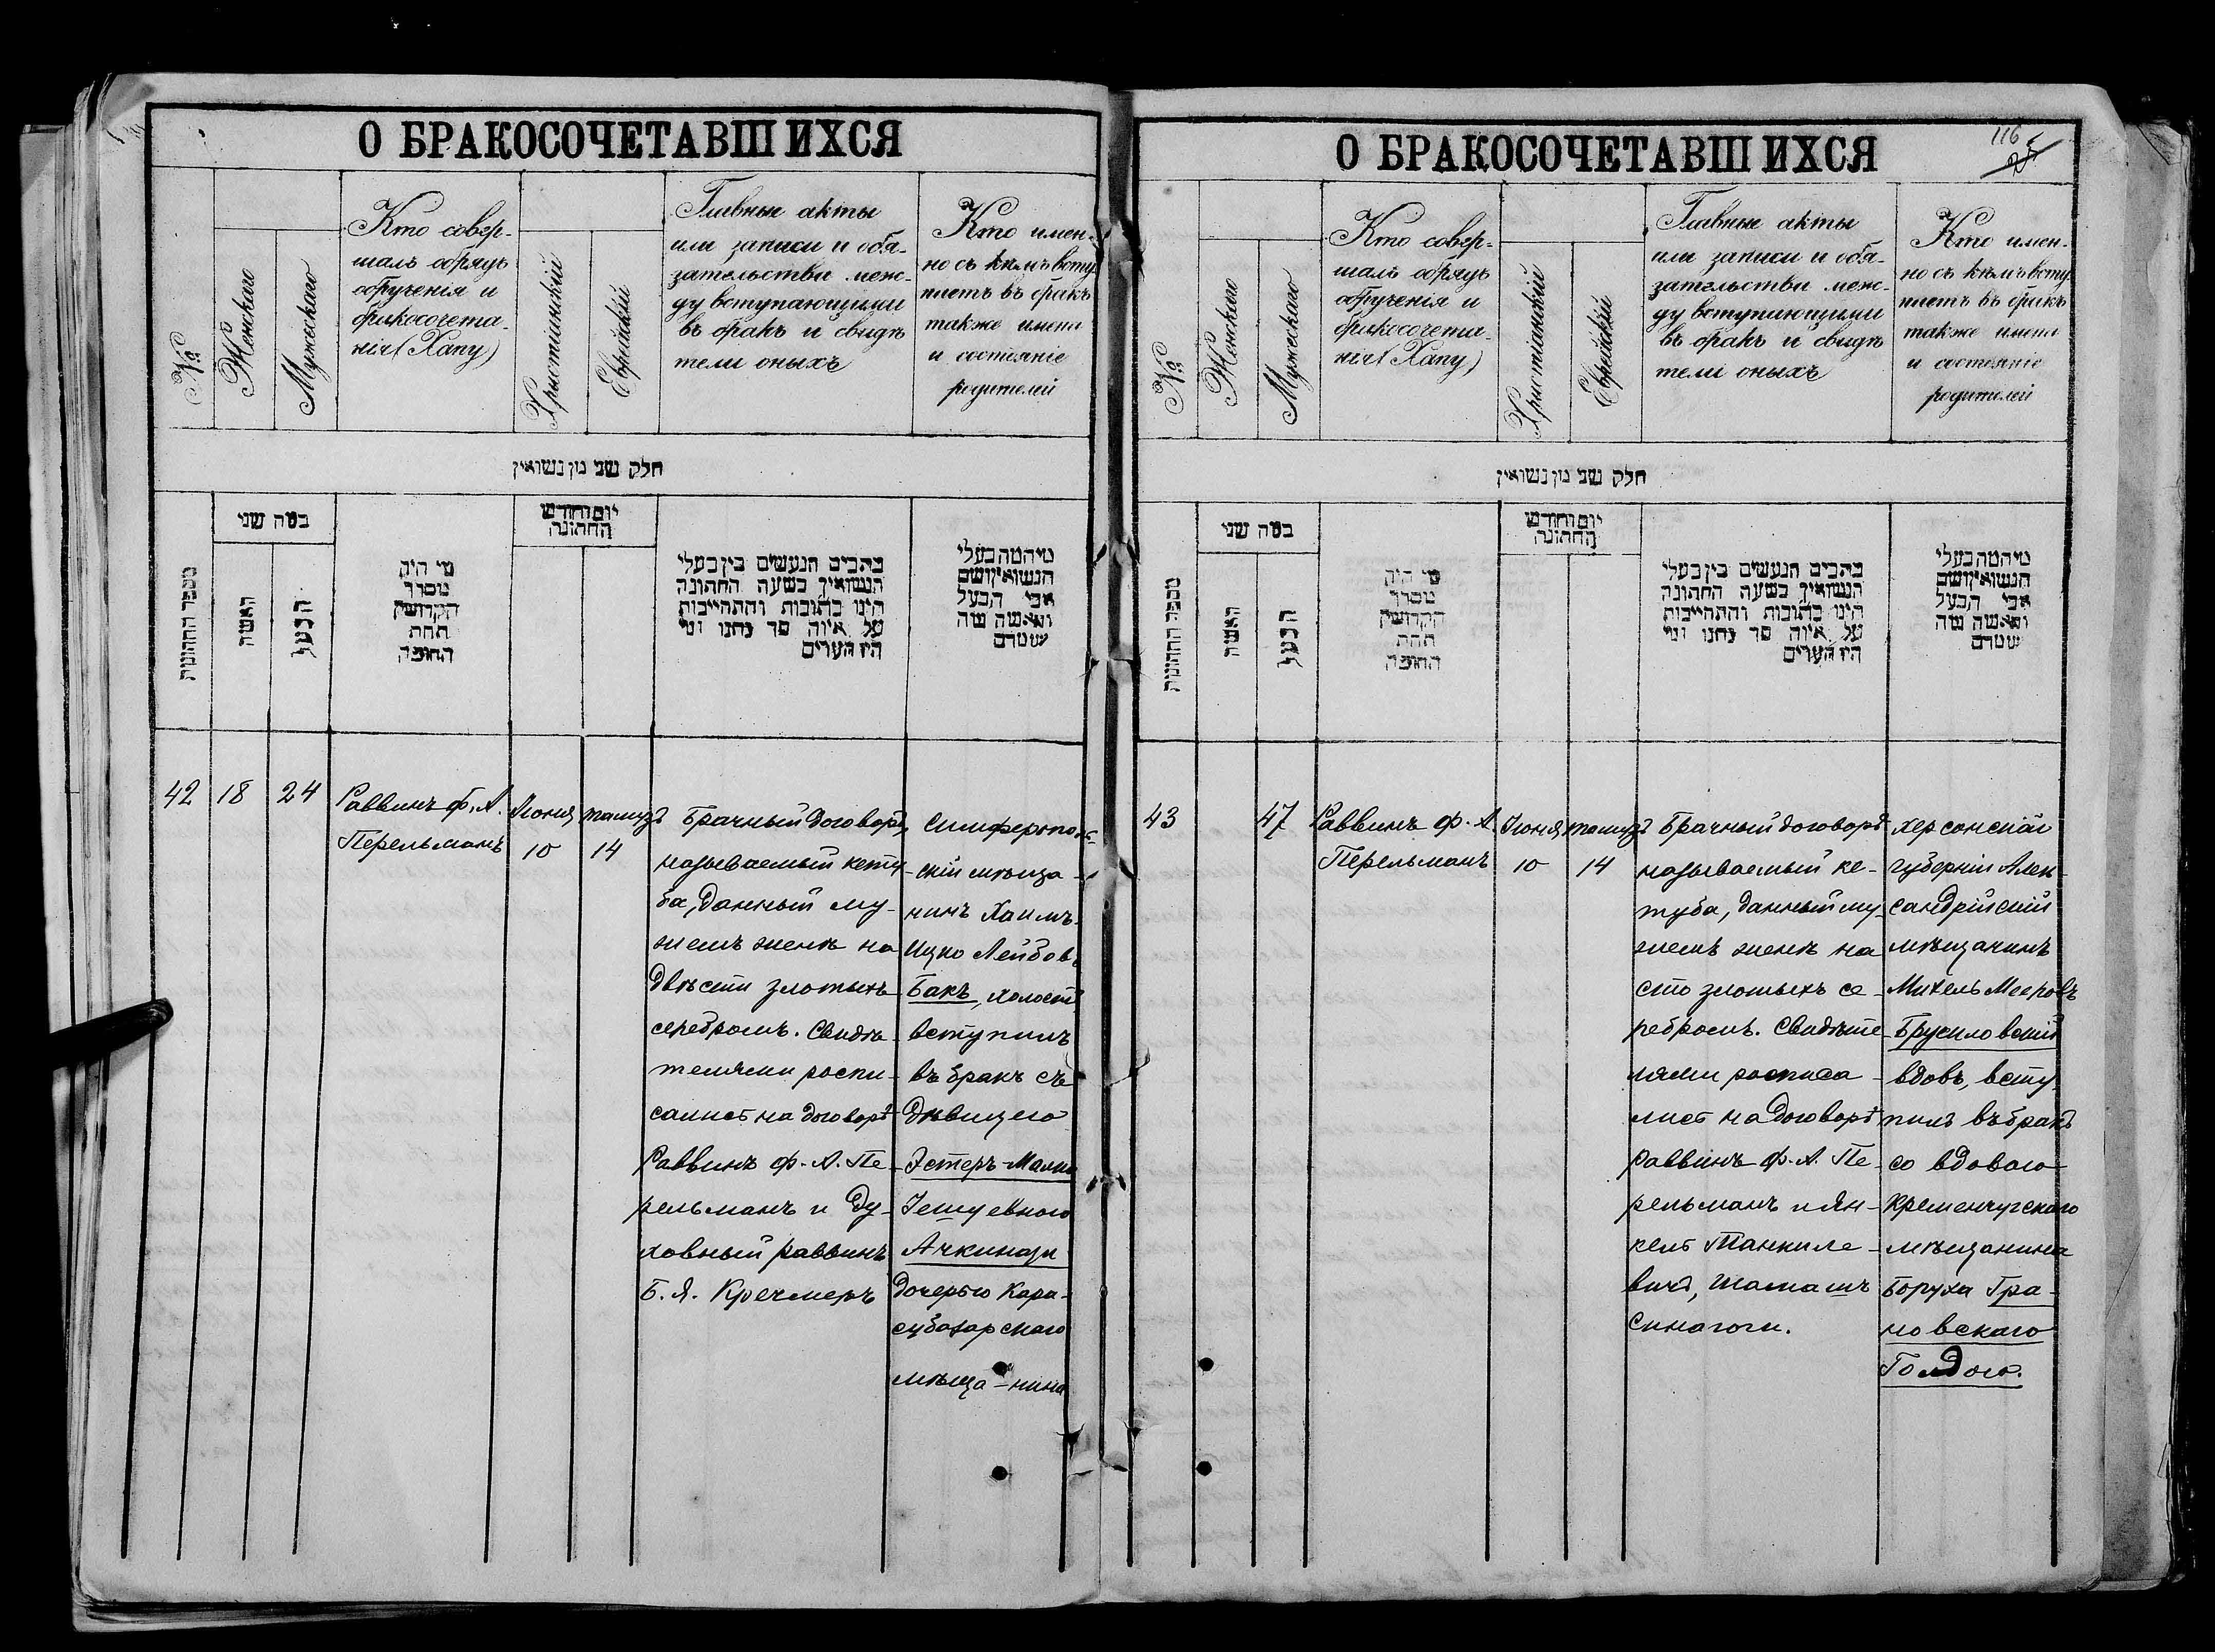 О БРАКОСОЧЕТАВШИХСЯ
№
Женскаго
Мужескаго
Кто совер-
шалъ обрядъ
обрученія и
бракосочета-
нія (Хапу)
Христіанскій
Еврейскій
Главные акты
или записи и обя-
зательства меж-
ду вступающими
въ бракъ и свидѣ
тели оныхъ
Кто имен-
но съ кѣмъ всту
паетъ въ бракъ
также имена
и состояніе
родителей
חלק שני מן נשואין
מספר החתונות
כמה שני
האשה
הבעל
מי היה
מסדר
הקדושין
תחת
החופה
יום וחודש
החתונה
בהבים הנעשים בין בעלי
הנשואין בשעה החתונה
היינו כתובות והתחייבות
על איזה סך נתנו ומי
היו העדים
מיהמה בעלי
הנשואין ושם
אבי הבעל
והאשה מה
שטרם
42
18
24
Раввинъ Ф. А.
Перельманъ
Іюня
10
тамузъ
14
Брачный договоръ,
называемый кету-
ба, данный му-
жемъ женѣ на
двѣсти злотыхъ
серебромъ. Свидѣ-
телями роспи-
сались на договорѣ
Раввинъ Ф. А. Пе-
рельманъ и Ду-
ховный раввинъ
Б. Я. Кречмеръ
Симферополь-
скій мѣща-
нинъ Хаимъ-
Ицко Лейбовъ
Бакъ, холостъ
вступилъ
въ бракъ съ
дѣвицею
Эстеръ-Малка
Іешуевною
Ачкинази
дочерью Кара-
субазарскаго
мѣща-нина
О БРАКОСОЧЕТАВШИХСЯ
116
25
№
Женскаго
Мужескаго
Кто совер-
шалъ обрядъ
обрученія и
бракосочета-
нія (Хапу)
Христіанскій
Еврейскій
Главные акты
или записи и обя-
зательства меж-
ду вступающими
въ бракъ и свидѣ
тели оныхъ
Кто имен-
но съ кѣмъ всту
паетъ въ бракъ
также имена
и состояніе
родителей
חלק שני מן נשואין
מספר החתונות
כמה שני
האשה
הבעל
מי היה
מסדר
הקדושין
תחת
החופה
יום וחודש
החתונה
בהבים הנעשים בין בעלי
הנשואין בשעה החתונה
היינו כתובות והתחייבות
על איזה סך נתנו ומי
היו העדים
מיהמה בעלי
הנשואין ושם
אבי הבעל
והאשה מה
שטרם
43
47
Раввинъ Ф. А.
Перельманъ
Іюня
10
тамузъ
14
Брачный договоръ
называемый ке-
туба, данный му-
жемъ женѣ на
сто злотыхъ се-
ребромъ. Свидѣте-
лями росписа-
лись на договорѣ
Раввинъ Ф. А. Пе-
рельманъ и Ян-
кель Танкиле-
вичъ, шамашъ
синагоги.
Херсонской
губерніи Алек-
сандрійскій
мѣщанинъ
Михель Мееровъ
Брусиловскій
вдовъ, всту-
пилъ въ бракъ
со вдовою
Кременчугскаго
мѣщанина
Боруха Гра-
новскаго
Голдою.